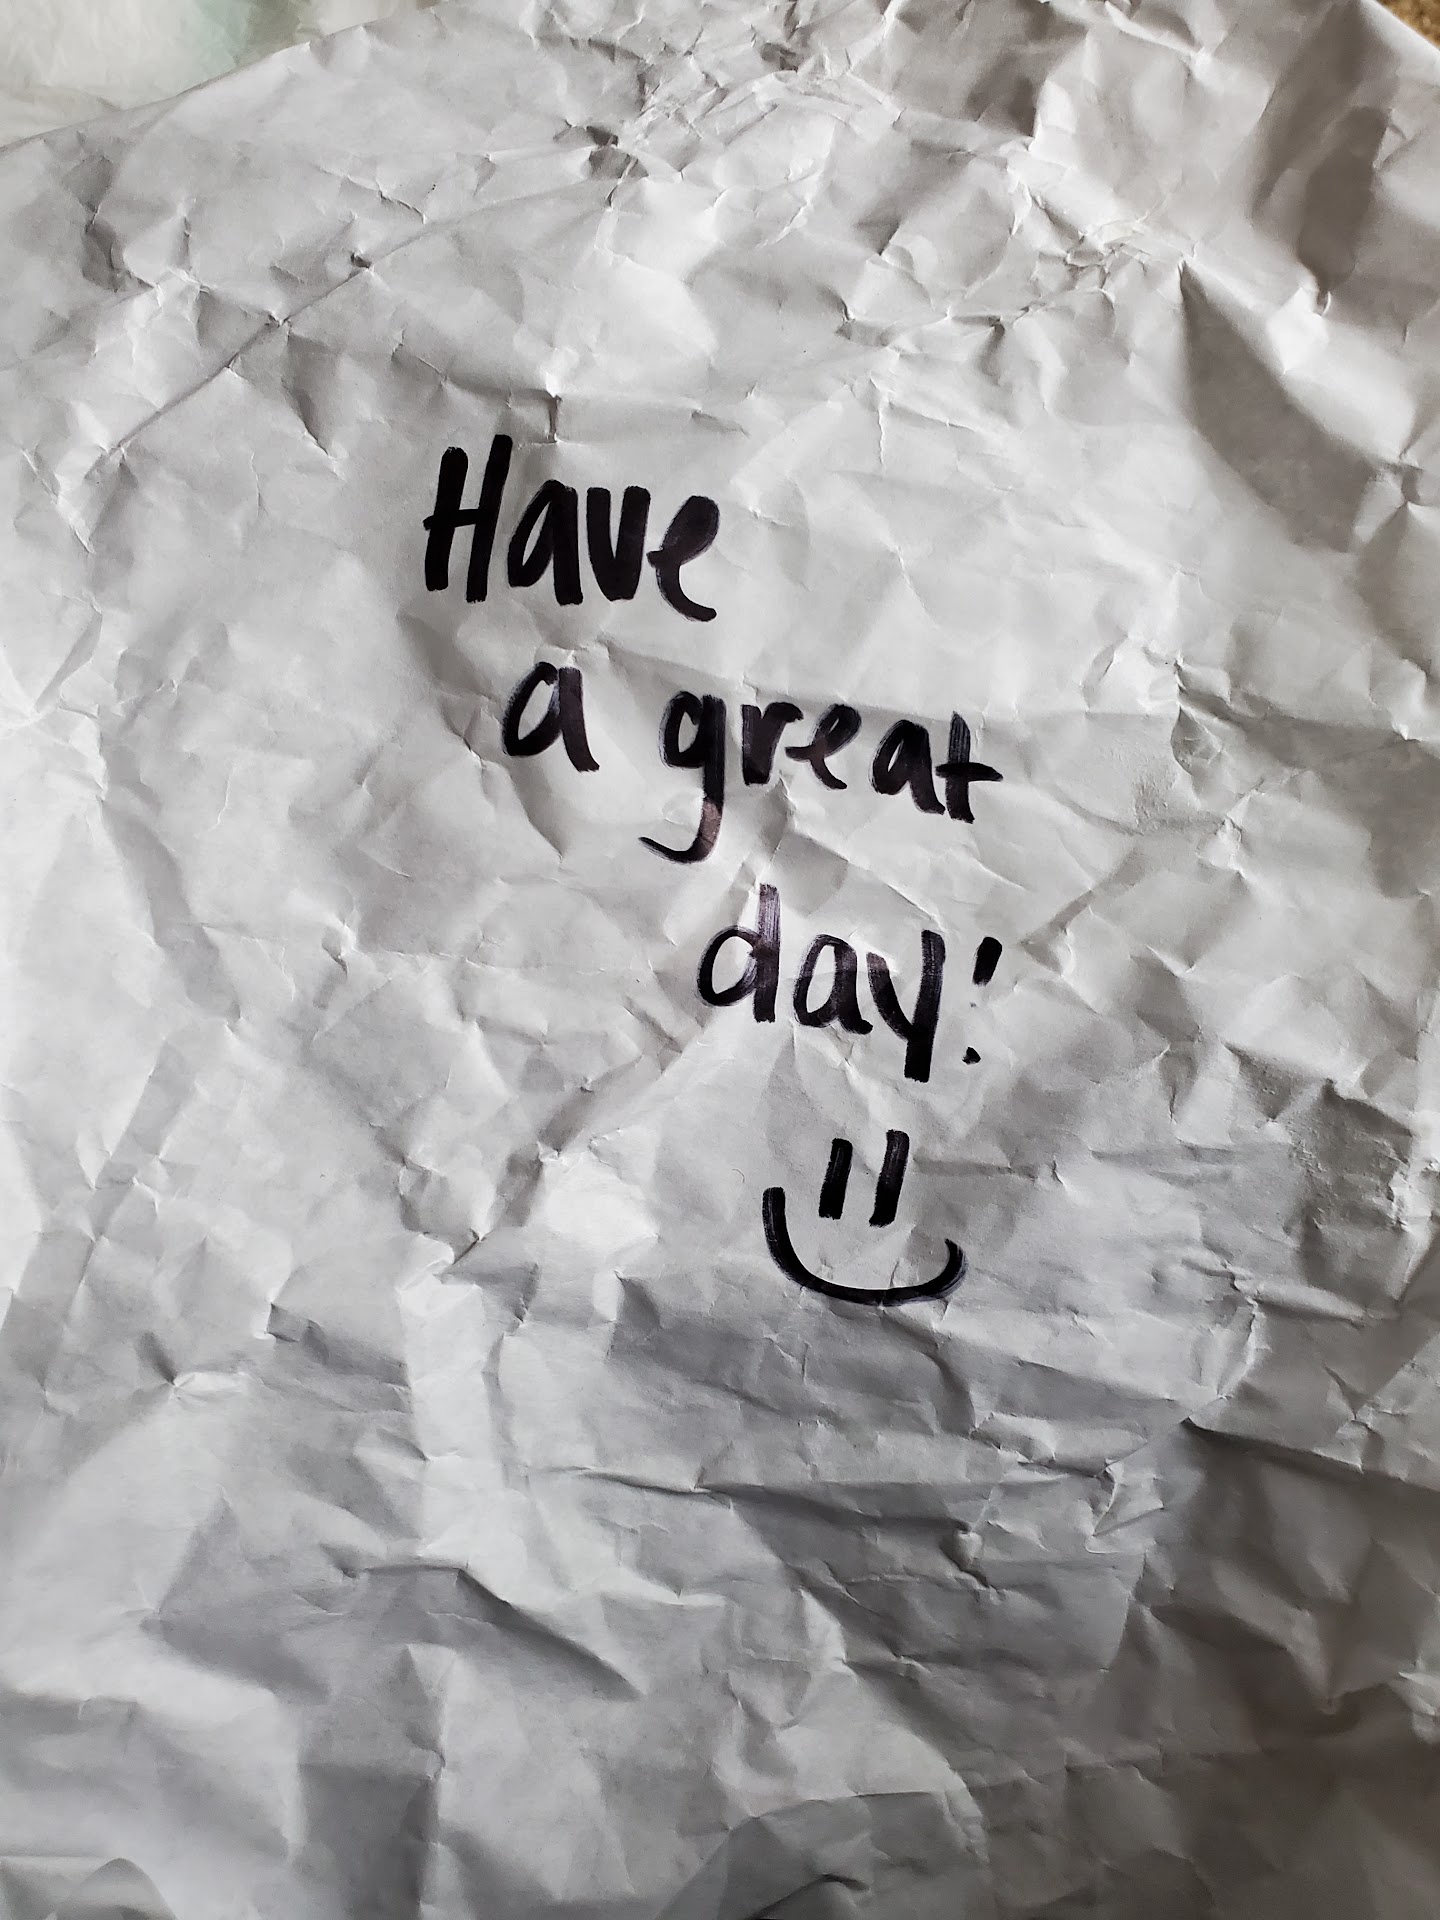 Have
a great
day!